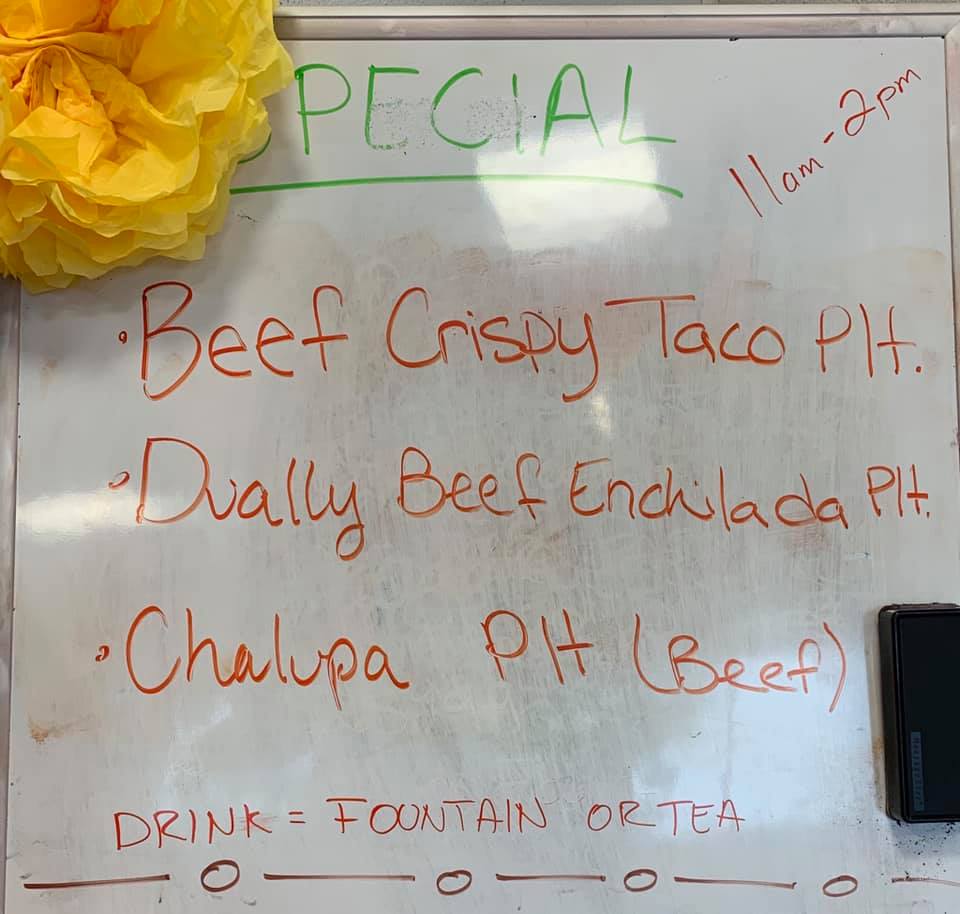 SPECIAL
11am - 2pm
• Beef Crispy Taco Plt.
• Dually Beef Enchilada Plt.
• Chalupa Plt (Beef)
DRINK = FOUNTAIN OR TEA